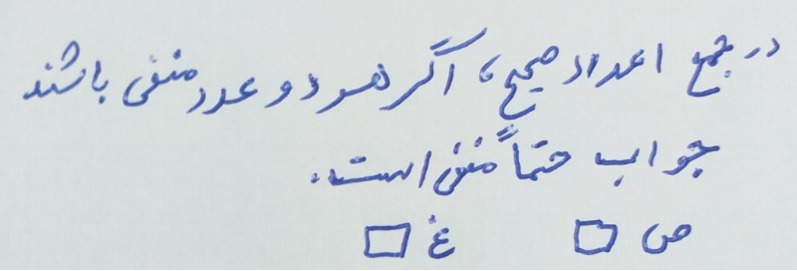 در جمع اعداد صحیح، اگر هر دو عدد منفی باشند
جواب حتماً منفی است.
ص □ غ □